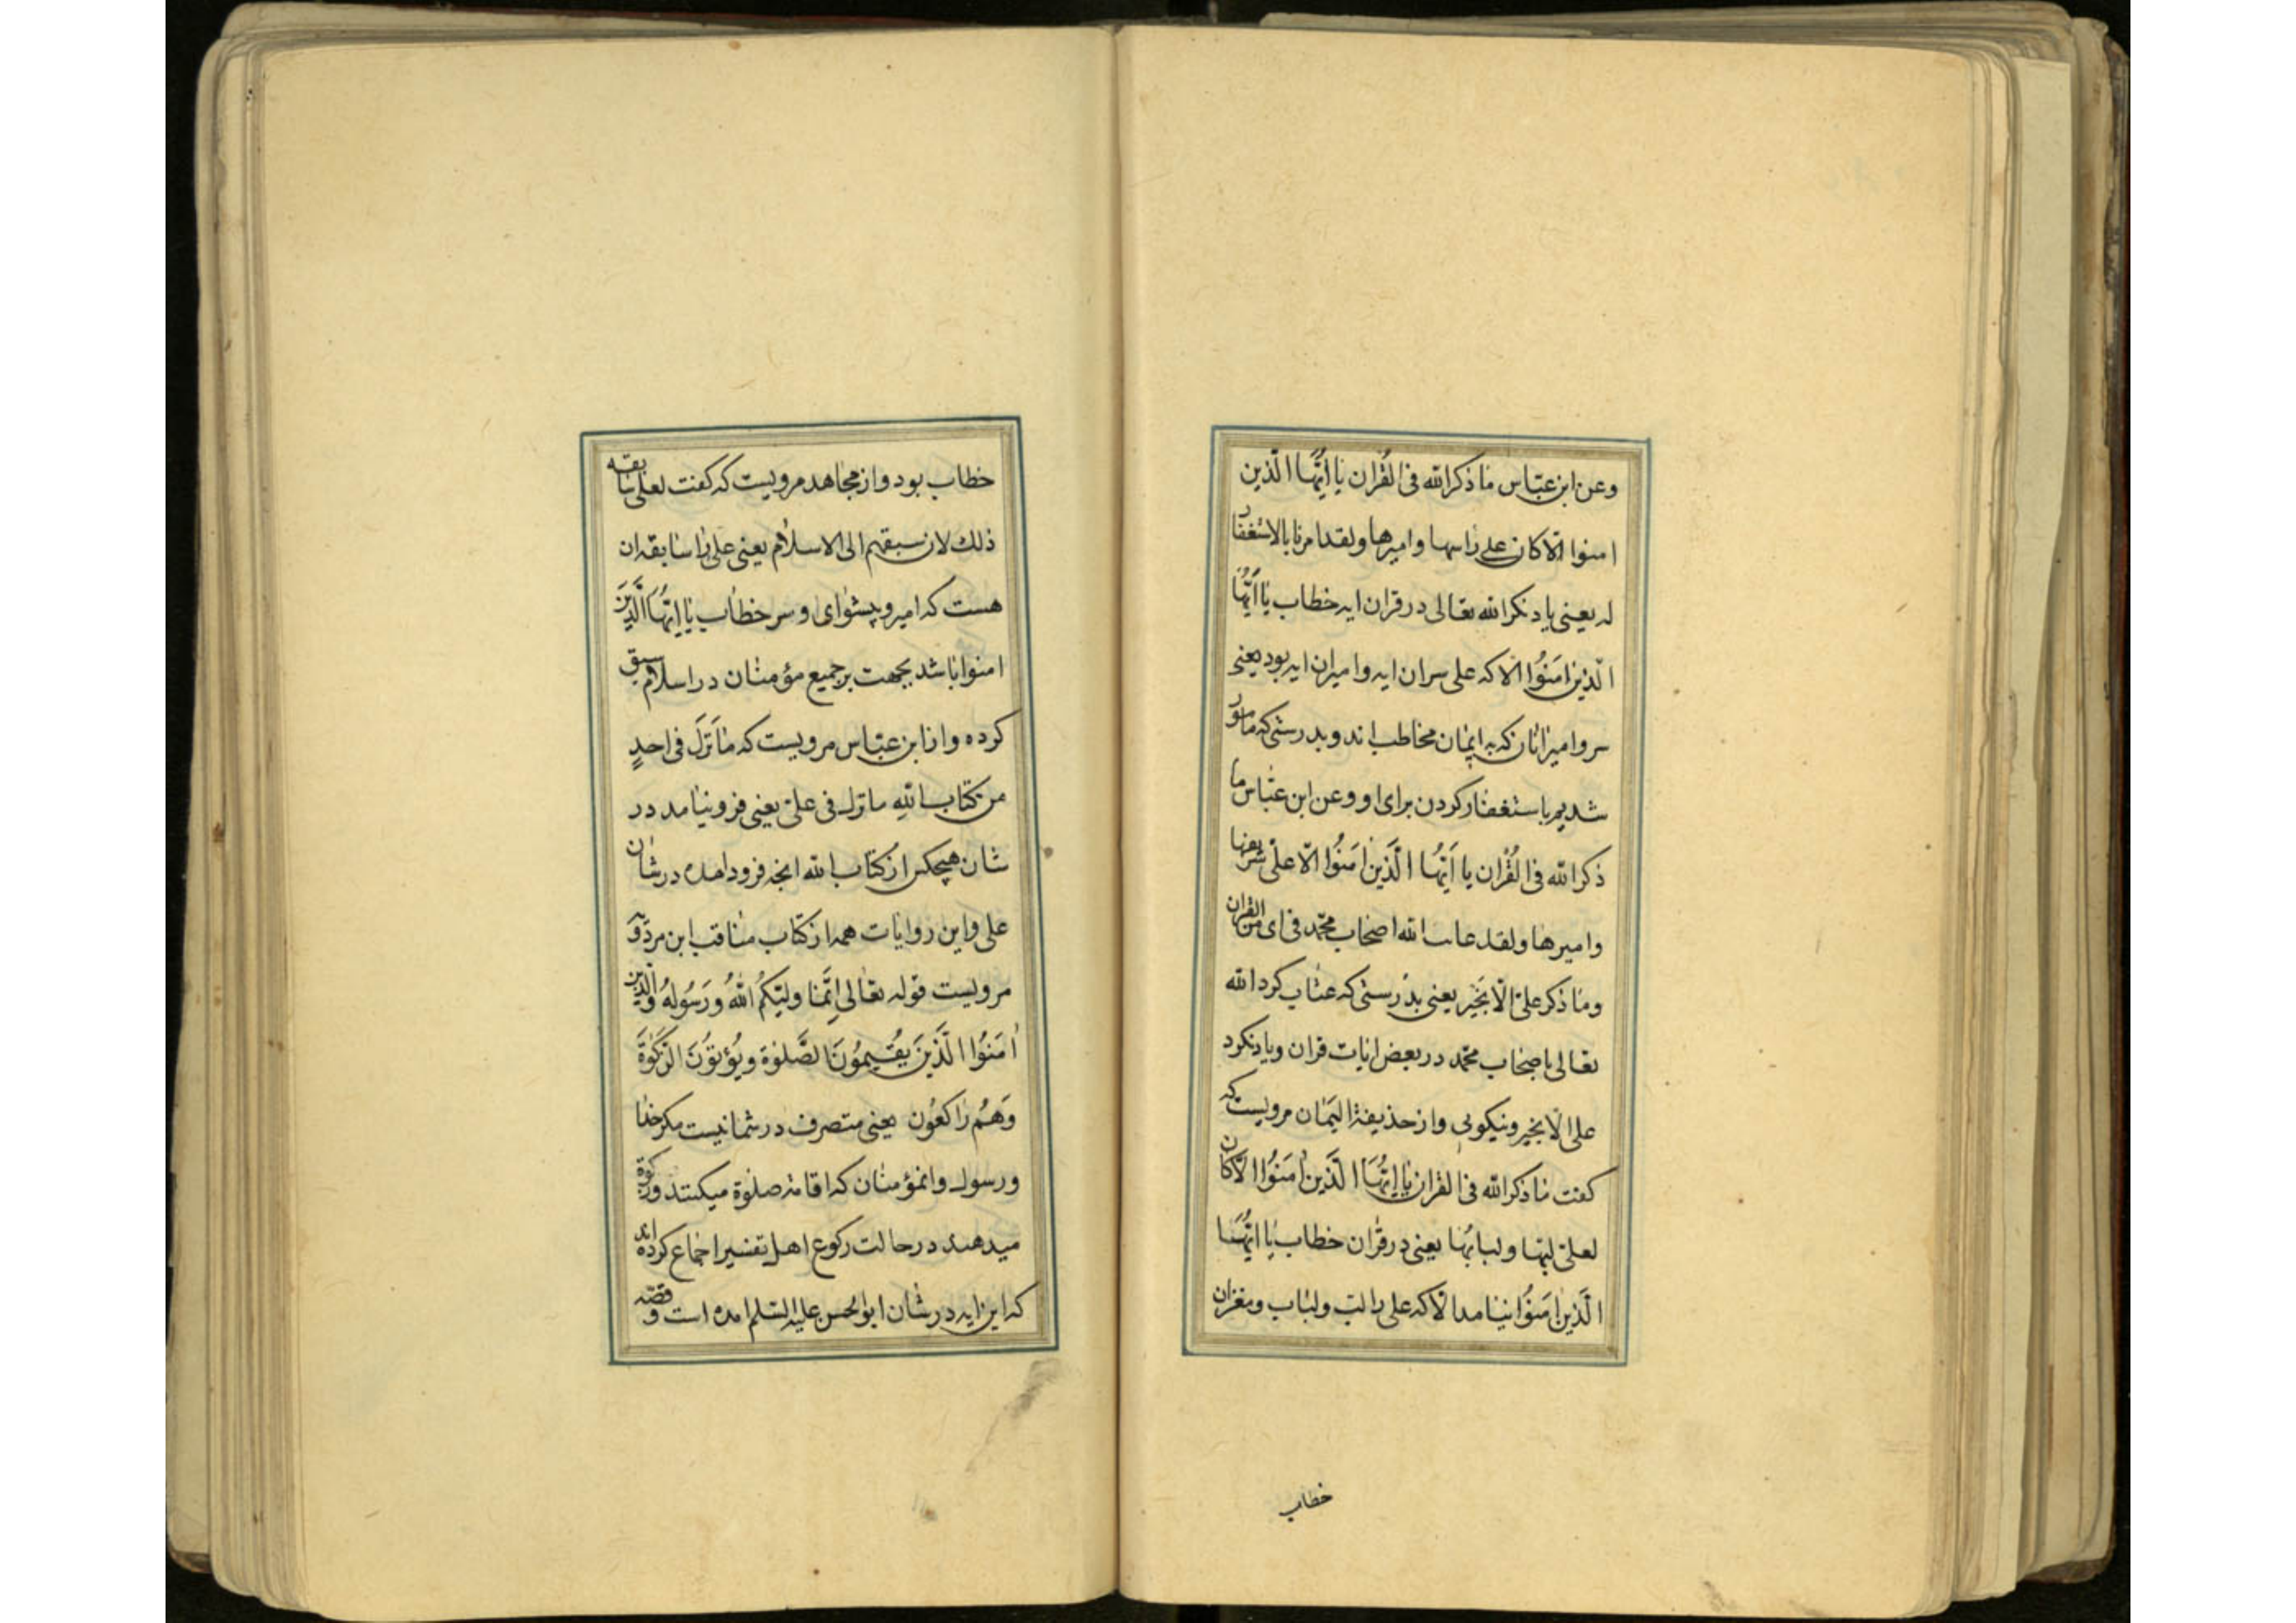 وعن ابن عبّاس ما ذكر الله فی القُران یا ایُّها الّذین
امنوا الّا كان علی راسها وامیرها ولقد امرنا بالاستغفار
له یعنی یاد نكر الله تعالی در قران ایه خطاب یا اَیُّها
الّذین امَنُوا الا كه علی سران ایه وامیران ایه بود یعنی
سر وامیر انان كه به ایمان مخاطب اند و بدرستی كه مامور
شدیم باستغفار كردن برای او وعن ابن عبّاس ما
ذكر الله فی القُران یا اَیُّها الَّذین امَنُوا الّا علیّ شریفها
وامیرها ولقد عاتب الله اصحاب محمّد فی ای من القران
وما ذكر علیّ الّا بخَیر یعنی بدرستی كه عتاب كرد الله
تعالی باصحاب محمّد در بعض ایات قران ویاد نكرد
علی الّا بخیر ونیكویی واز حذیفة الیَمان مرویست كه
كفت ما ذكر الله فی القران یا ایُّهَا الَّذین امَنُوا الّا كان
لعلیّ لبّها ولبابُها یعنی در قران خطاب یا ایُّهَا
الَّذین امَنُوا نیامد الّا كه علی را لبّ ولباب ومغز ان
خطاب
خطاب بود واز مجاهد مرویست كه كفت لعلی سابقه
ذلك لان سبقهم الی الاسلام یعنی علی را سابقه ان
هست كه امیر وپیشوای وسر خطاب یا ایُّهَا الَّذینَ
امنوا باشد بجهت بر جمیع مؤمنان در اسلام سبق
كرده واز ابن عبّاس مرویست كه ما نَزَلَ فی احدٍ
من كتاب اللهِ ما نزل فی علیّ یعنی فرو نیامد در
شان هیچكس از كتاب الله انچه فرود امده در شان
علی واین روایات همه از كتاب مناقب ابن مردَو
مرویست قوله تعالی اِنَّما ولیّكمُ اللهُ ورَسُولهُ والَّذین
اٰمَنُوا الَّذینَ یُقیمُونَ الصَّلوٰة ویُؤتوُنَ الزَّكوٰةَ
وَهُم راكعُون یعنی متصرف در شما نیست مكر خدا
ورسول وانمؤمنان كه اقامه صلوة میكنند وزكوة
میدهند در حالت ركوع اهل تفسیر اجماع كرده اند
كه این ایه در شان ابو الحسن علیه السّلم امده است وقصّه